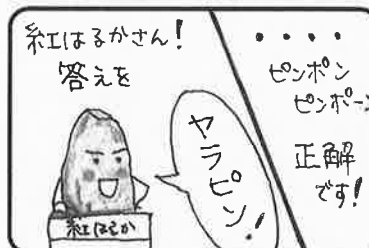 紅はるかさん!
答えを
紅はるか
ヤラピン!
・・・・
ピンポン
ピンポーン
正解
です!